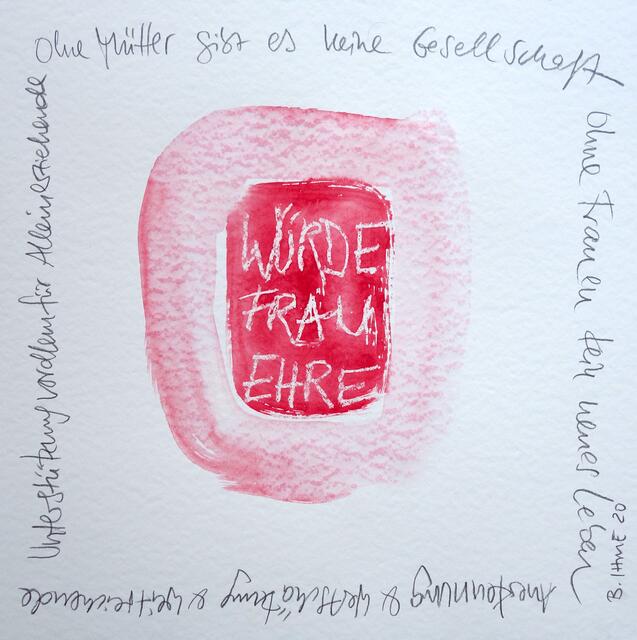 Ohne Mütter gibt es keine Gesellschaft
Ohne Frauen kein neues Leben
Anerkennung & Wertschätzung & weitreichende
Unterstützung vor allem für Alleinerziehende
WÜRDE
FRAU
EHRE
B. IHME 20